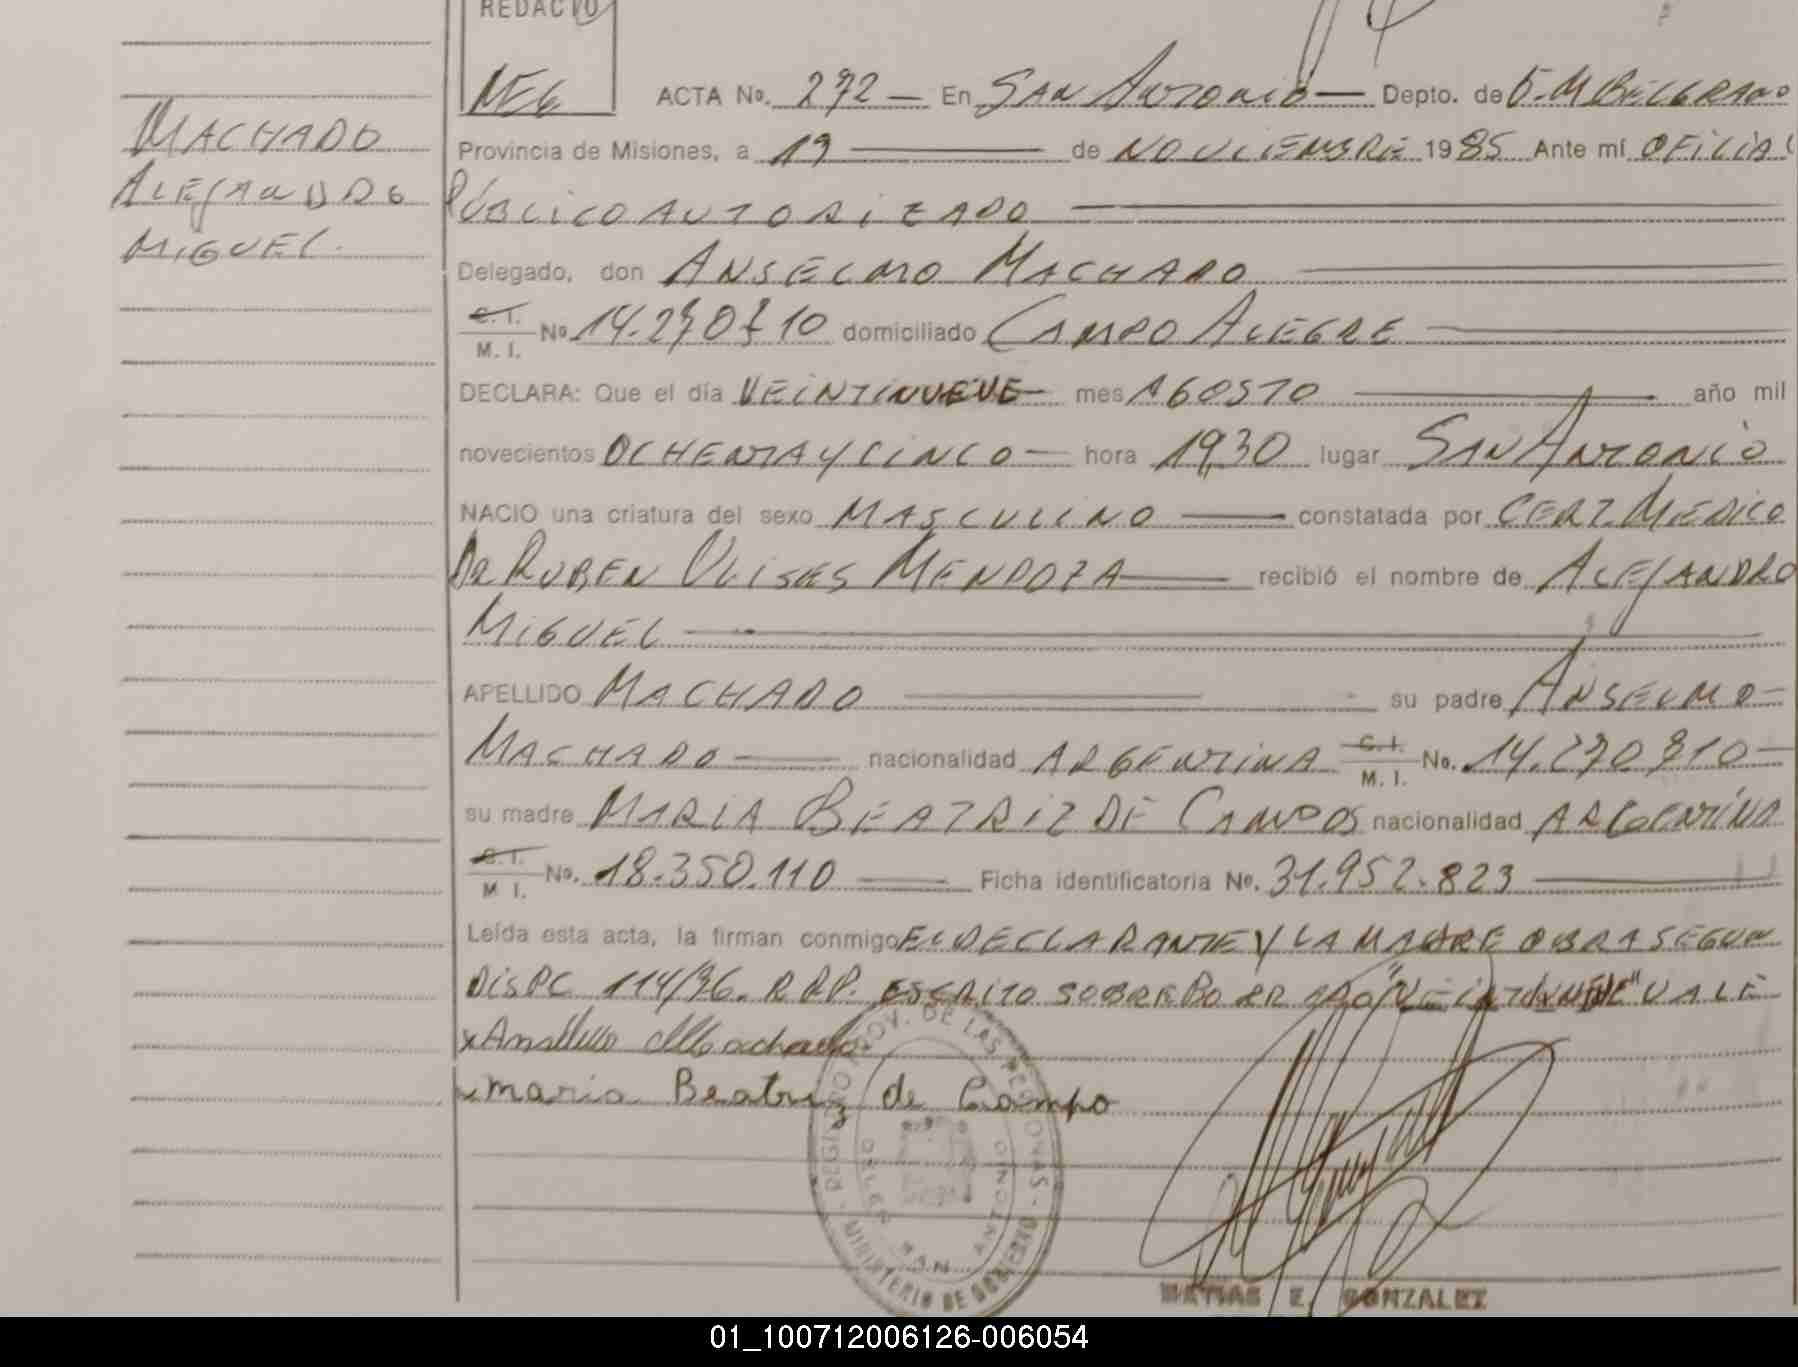 REDACTO
MEG
ACTA No. 272 — En SAN ANTONIO — Depto. de G. M BELGRANO
MACHADO
ALEJANDRO
MIGUEL.
Provincia de Misiones, a 19 — de NOVIEMBRE 1985 Ante mí OFICIAL
PÚBLICO AUTORIZADO —
Delegado, don ANSELMO MACHADO —
C. I. / M. I. No. 14.270710 domiciliado CAMPO ALEGRE —
DECLARA: Que el día VEINTINUEVE — mes AGOSTO — año mil
novecientos OCHENTA Y CINCO — hora 19,30 lugar SAN ANTONIO
NACIO una criatura del sexo MASCULINO — constatada por CERT. MEDICO
DR RUBEN ULISES MENDOZA — recibió el nombre de ALEJANDRO
MIGUEL —
APELLIDO MACHADO — su padre ANSELMO —
MACHADO — nacionalidad ARGENTINA C. I. / M. I. No. 14.270.710 —
su madre MARIA BEATRIZ DE CAMPOS nacionalidad ARGENTINA
C. I. / M I. No. 18.350.110 — Ficha identificatoria No. 31.952.823 —
Leída esta acta, la firman conmigo EL DECLARANTE Y LA MADRE OBRA SEGUN
DISPC 114/76. R.P.P. ESCRITO SOBRE BORRADO "VEINTINUEVE" VALE
x Anselmo Machado.
x maria Beatriz de Campo
REGISTRO PROV. DE LAS PERSONAS - MINISTERIO DE GOBIERNO
DELEG. SAN ANTONIO
MATIAS E. GONZALEZ
01_100712006126-006054